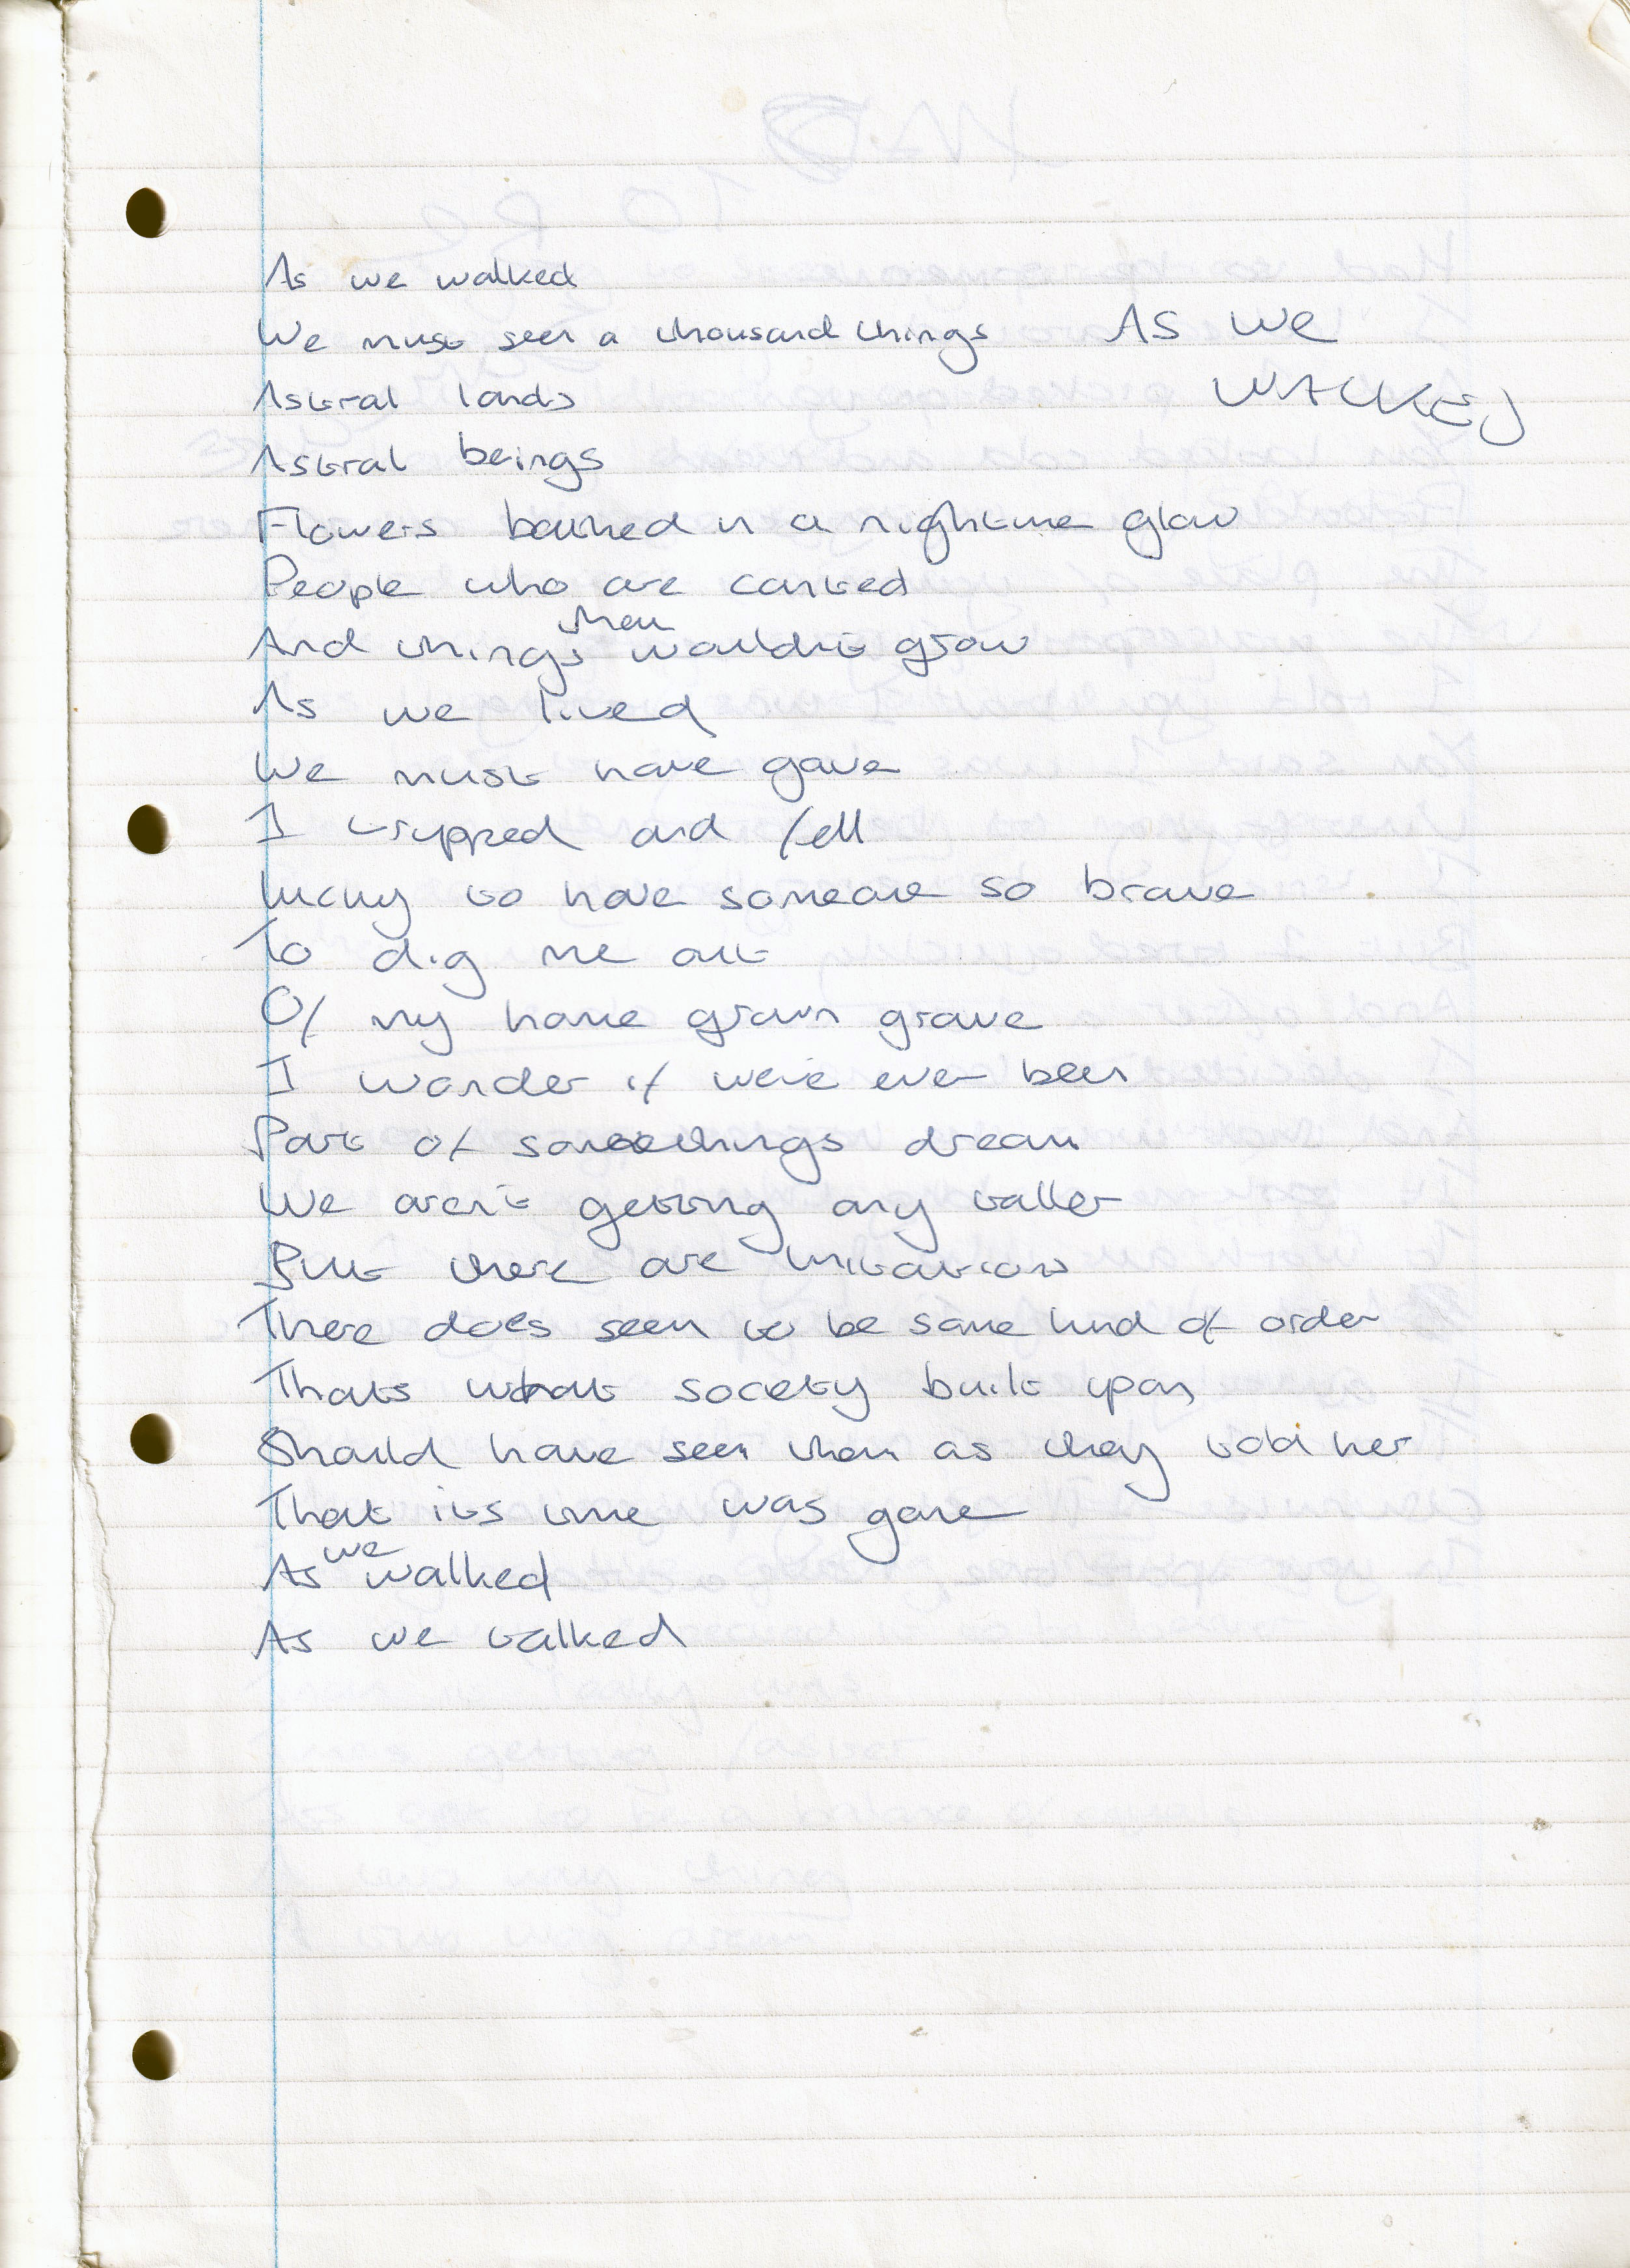 As we walked
We must seen a thousand things
AS WE
WALKED
Astral lands
Astral beings
Flowers bathed in a nightime glow
People who are conted
And things that wouldn't grow
As we lived
We must have gave
I tripped and fell
lucky to have someone so brave
To dig me out
Of my home grown grave
I wonder if we've ever been
Part of somethings dream
We aren't getting any taller
But there are imitations
There does seem to be some kind of order
Thats what society built upon
Should have seen them as they told her
That its time was gone
As we walked
As we talked